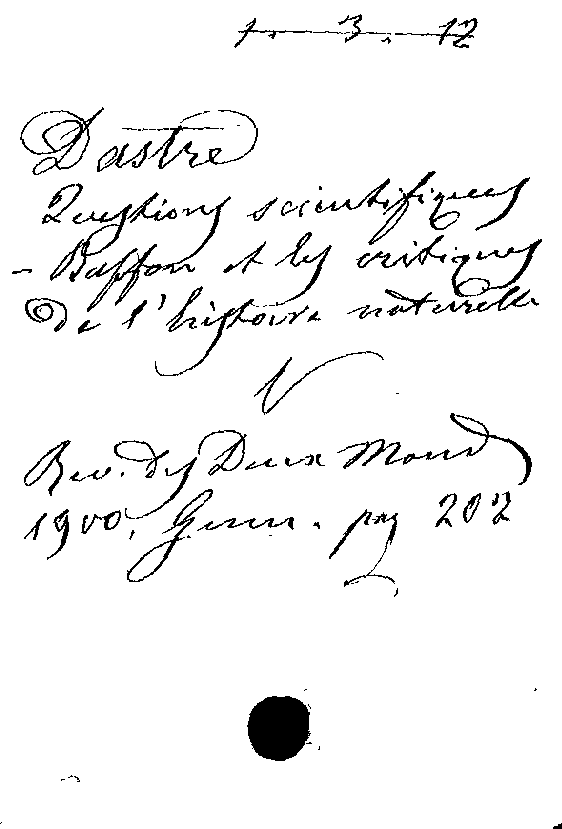 1. 3. 12
Dastre
Questions scientifiques
- Buffon et les critiques
de l'histoire naturelle
Rev. des Deux Mond
1900, Genn. pag 202